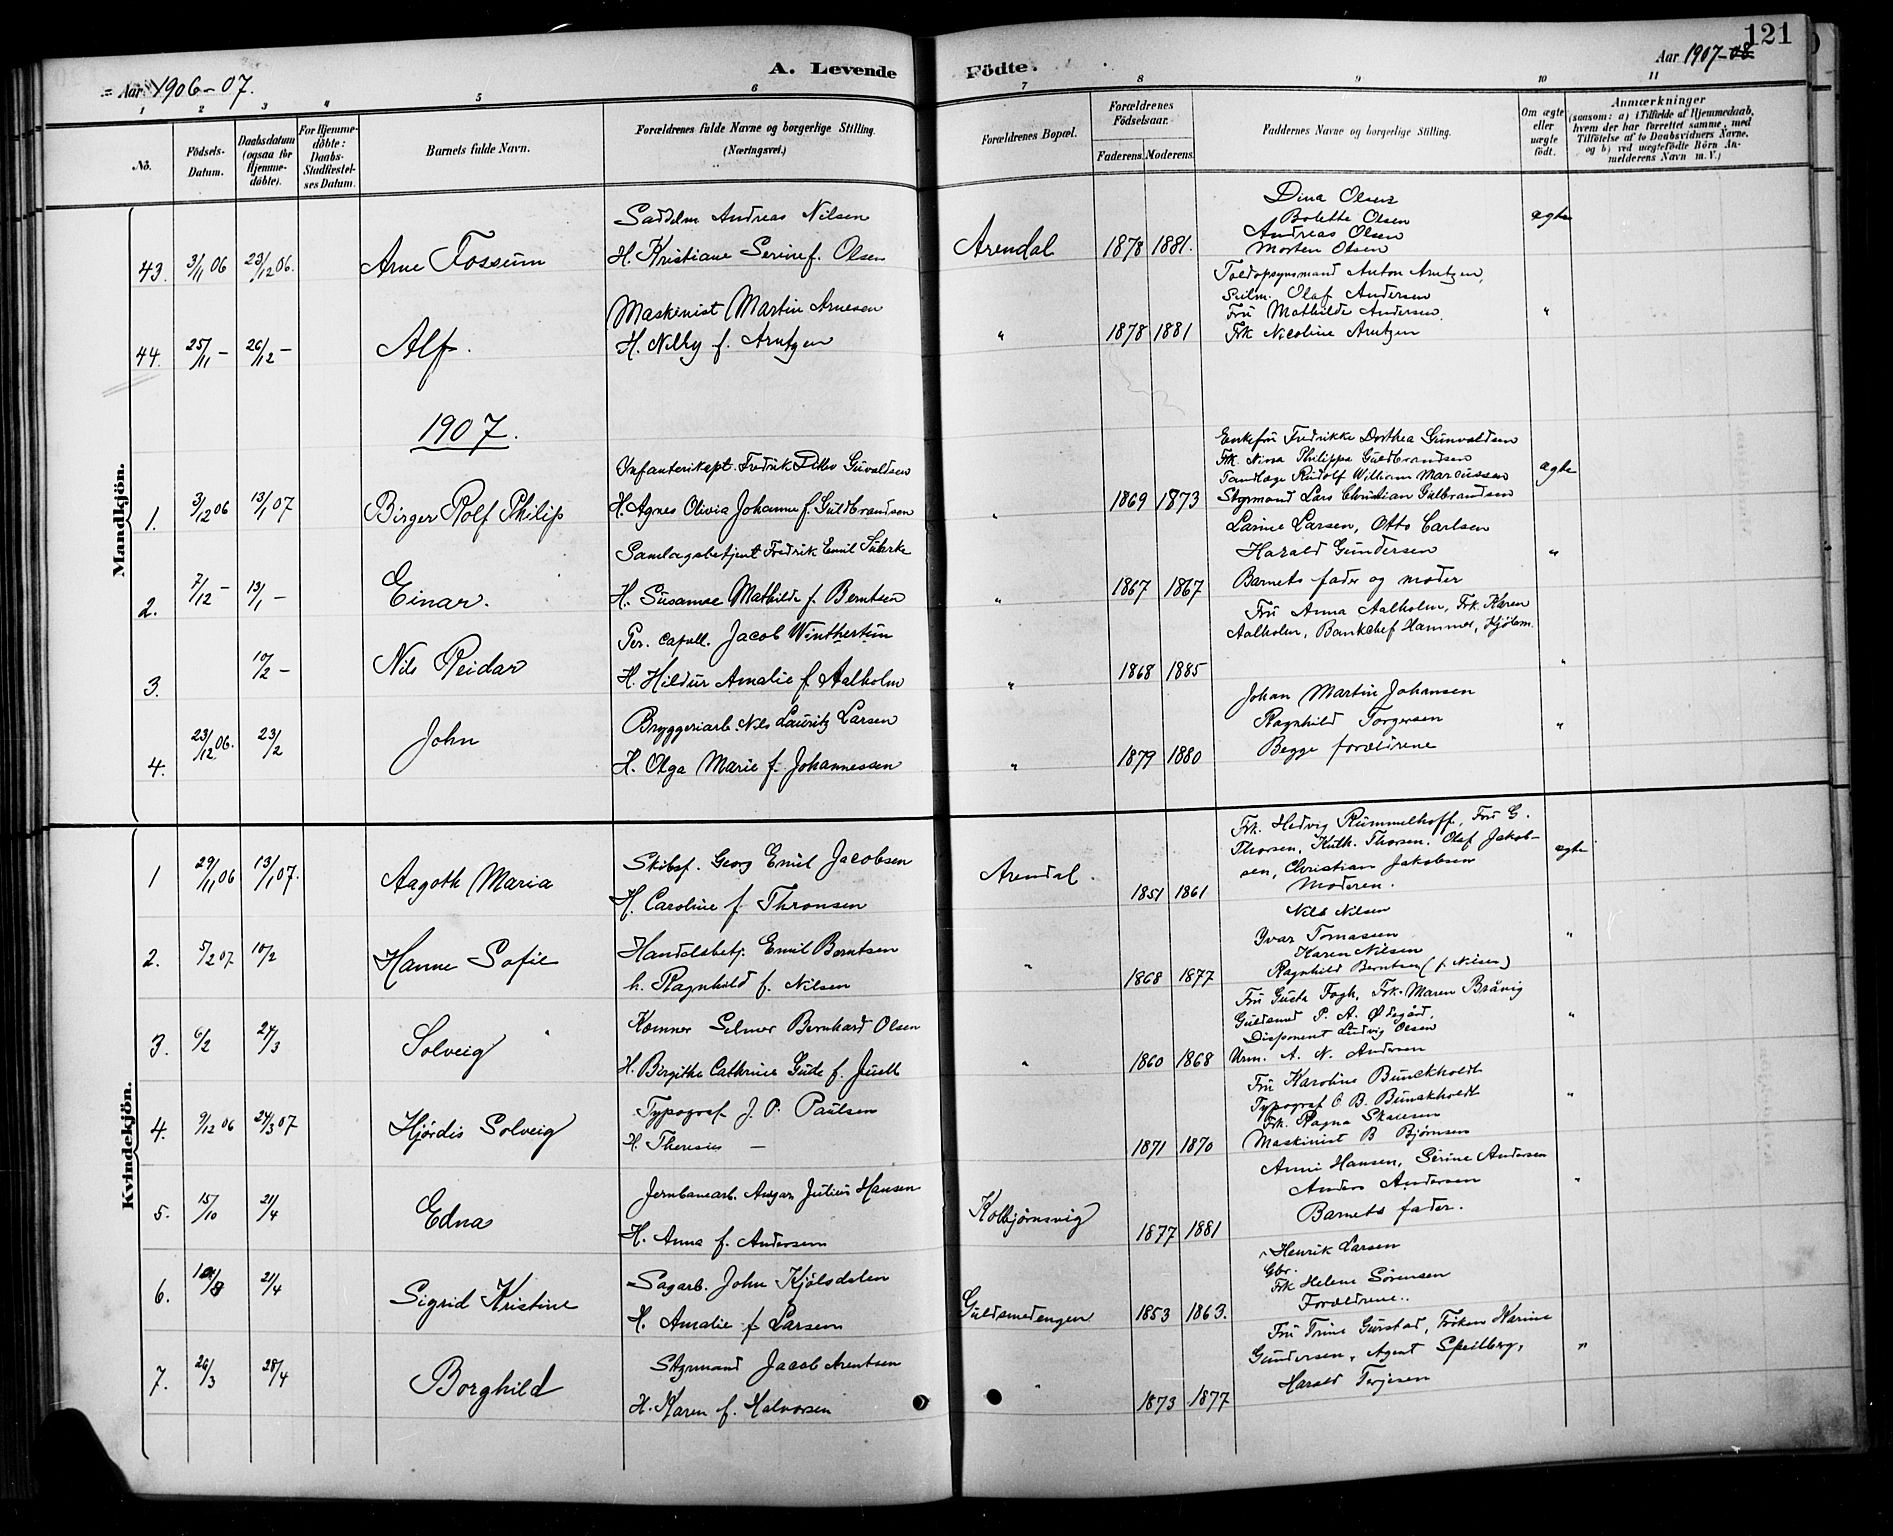 121
= Aar 1906-07.
A. Levende Födte.
Aar 1907-08
1 2 3 4 5 6 7 8 9 10 11
No.
Födsels-Datum.
Daabsdatum (ogsaa for Hjemme-döbte).
For Hjemme-döbte: Daabs-Stadfæstel-ses Datum.
Barnets fulde Navn.
Forældrenes fulde Navne og borgerlige Stilling. (Næringsvei.)
Forældrenes Bopæl.
Forældrenes Födselsaar.
Faderens. Moderens.
Faddernes Navne og borgerlige Stilling.
Om ægte eller uægte födt.
Anmærkninger
(saasom: a) i Tilfælde af Hjemmedaab, hvem der har forrettet samme, med Tilföielse af to Daabsvidners Navne, og b) ved uægtefödte Börn An-melderens Navn m. V.)
Mandkjön.
43. 3/11 06 23/12 06. Arne Fossum
Saddelm Andreas Nilsen
H. Kristiane Serine f. Olsen
Arendal 1878 1881.
Dina Olsen
Bolette Olsen
Andreas Olsen
Morten Olsen
ægte
44. 25/11 - 26/12 - Alf.
Maskinist Martin Arnesen
H. Nelly f. Arntzen
" 1878 1881
Toldopsynsmand Anton Arntzen,
Seilm. Olaf Andersen
Fru Mathilde Andersen
Frk Nicoline Arntzen
"
1907.
1. 3/12 06 13/1 07 Birger Rolf Philip
Infanterikapt. Fredrik Ditlev Guvaldsen
H. Agnes Olivia Johanne f. Guldbrandsen
" 1869 1873
Enkefru Fredrikke Dorthea Gunvaldsen
Frk. Nina Philippa Guldbrandsen
Tandlæge Rudolf William Marcussen
Styrmand Lars Christian Gulbrandsen
ægte
2. 7/12 - 13/1 - Einar.
Samlagsbetjent Fredrik Emil Suhrke
H. Susanne Mathilde f. Berntsen
" 1867 1867
Larine Larsen, Otto Carlsen
Harald Gundersen
Barnets fader og moder
"
3. 10/2 - Nils Reidar
Per. capell. Jacob Winthertun
H. Hildur Amalie f. Aalholm
" 1868 1885
Fru Anna Aalholm, Frk. Karen
Aalholm, Bankchef Hammer, Kjøbm.
"
4. 23/12 06. 23/2 John
Bryggeriarb. Nils Lauritz Larsen
H. Olga Marie f. Johannessen
" 1879 1880
Johan Martin Johansen
Ragnhild Torgersen
Begge forældrene
"
Kvindekjön.
1 29/11 06 13/1 07. Aagoth Maria
Skibsf. Georg Emil Jacobsen
H. Caroline f Thronsen
Arendal. 1851 1861
Frk. Hedvig Rummelhoff, Fru G.
Thorsen, Kath. Thorsen, Olaf Jakob-
sen, Christian Jakobsen
Moderen.
ægte
2. 5/2 07 10/2 Hanne Sofie
Handelsbetj. Emil Berntsen
h. Ragnhild f. Nilsen
" 1868 1877
Nils Nilsen
Yvar Tomassen
Karen Nilsen
Ragnhild Berntsen (f. Nilsen)
"
3. 6/2 24/3 Solveig
Kæmner Selmer Bernhard Olsen
H. Birgithe Cathrine Gude f. Juell
" 1860 1868
Fru Gusta Fogh, Frk. Maren Brånig
Guldsmed P. A. Ødegård,
Disponent Ludvig Olsen
Urm. A. N. Andersen
"
4. 9/12 06 24/3 07 Hjördis Solveig
Typograf J. P. Paulsen
H. Theresie -
1871 1870
Fru Karoline Bunckholdt
Typograf C B. Bunckholdt
Frk. Ragna Skaiesen
Maskinist B Bjørnsen
"
5. 15/10 21/4 Edna
Jernbanearb. Ansgar Julius Hansen
H. Anna f. Andersen
Kolbjørnsvig 1877 1881
Anni Hansen, Serine Andersen
Anders Andersen
Barnets fader.
"
6. 21/4 Sigrid Kristine
Sagarb. John Kjølsdalen
H. Amalie f Larsen
Guldsmedengen 1853 1863.
Henrik Larsen
Gbr.
Frk Helene Sørensen
Forældrene.
7. 26/3 28/4 Borghild
Styrmand Jacob Arentsen
H. Karen f. Halvorsen
" 1873 1877
Fru Trine Gurstad, Frøken Karine
Gundersen, Agent Speilberg,
Harald Terjesen
"